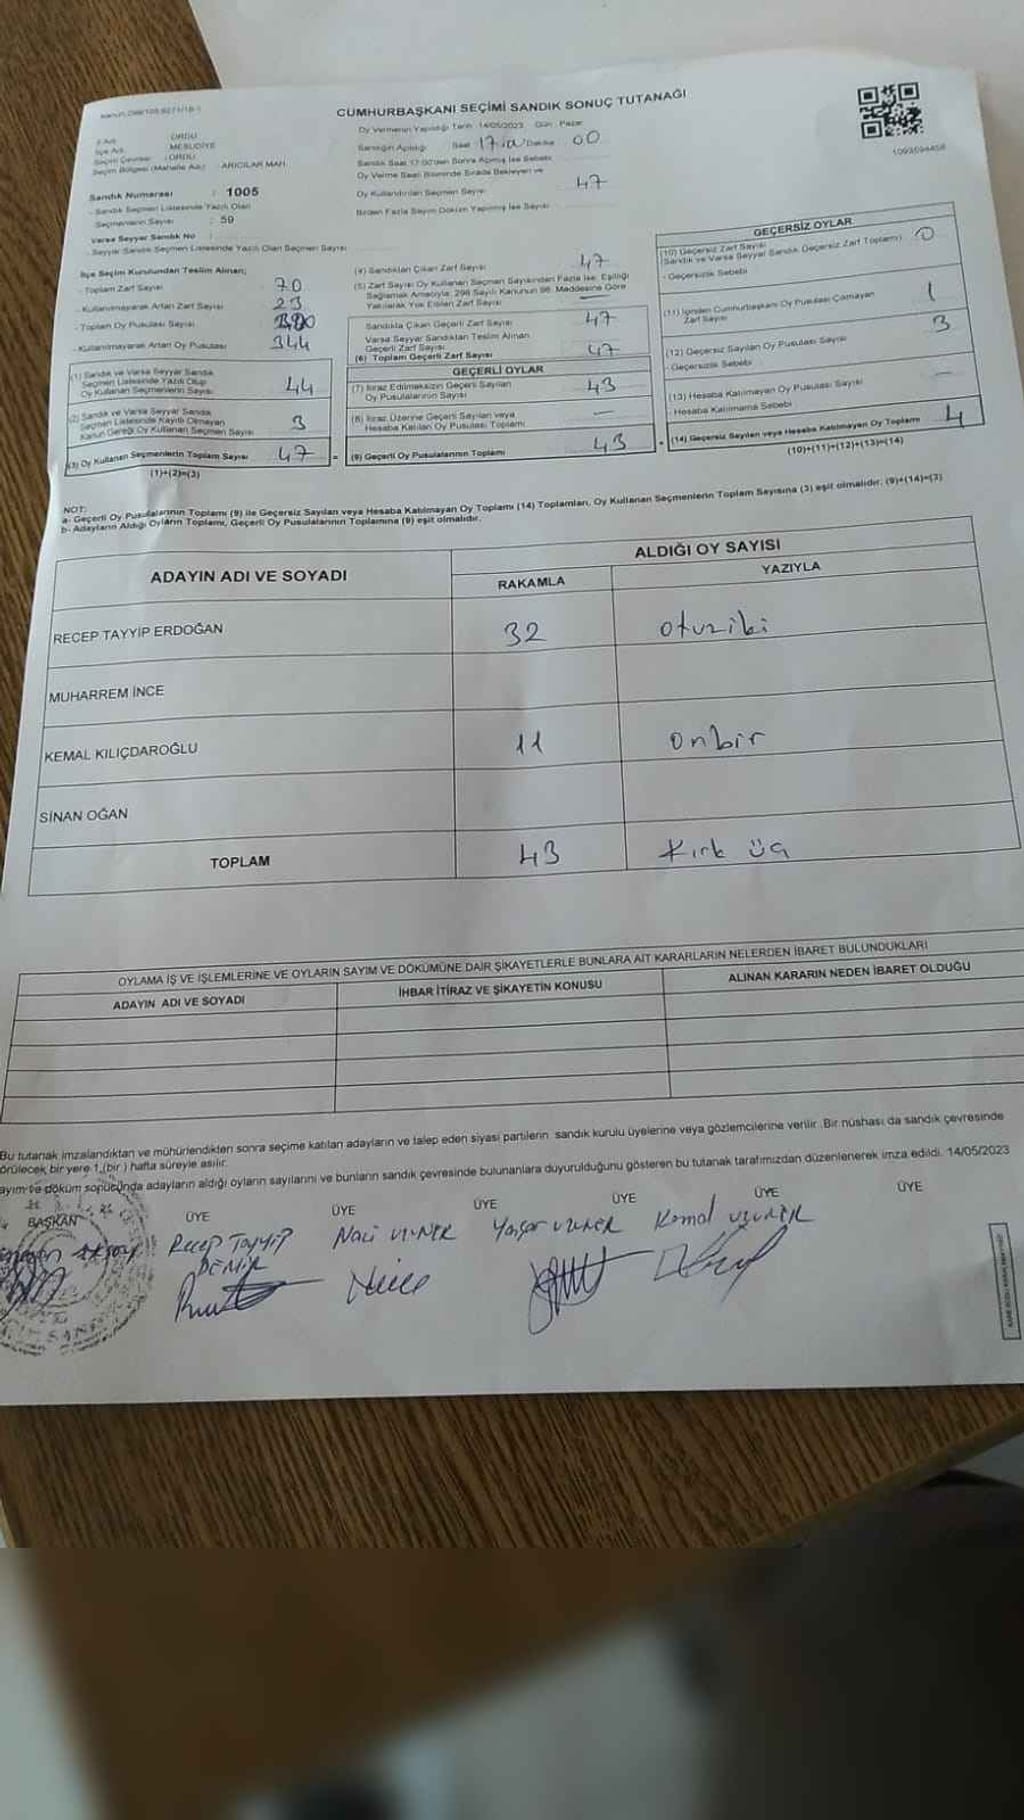 CUMHURBAŞKANI SEÇİMİ SANDIK SONUÇ TUTANAĞI
İl Adı ORDU
İlçe Adı MESUDİYE
Seçim Çevresi : ORDU
Seçim Bölgesi (Mahalle Adı) : ARICILAR MAH.
Sandık Numarası : 1005
- Sandık Seçmen Listesinde Yazılı Olan
Seçmenlerin Sayısı : 59
Varsa Seyyar Sandık No
- Seyyar Sandık Seçmen Listesinde Yazılı Olan Seçmen Sayısı
Oy Vermenin Yapıldığı Tarih : 14/05/2023 Gün : Pazar
Sandığın Açıldığı Saat 17 Dakika 00
Sandık Saat 17:00'den Sonra Açılmış İse Sebebi
Oy Verme Saati Bitiminde Sırada Bekleyen ve
Oy Kullandırılan Seçmen Sayısı 47
Birden Fazla Sayım Döküm Yapılmış İse Sayısı
1093594458
İlçe Seçim Kurulundan Teslim Alınan;
- Toplam Zarf Sayısı 70
- Kullanılmayarak Artan Zarf Sayısı 23
- Toplam Oy Pusulası Sayısı
- Kullanılmayarak Artan Oy Pusulası 344
(1) Sandık ve Varsa Seyyar Sandık
Seçmen Listesinde Yazılı Olup
Oy Kullanan Seçmenlerin Sayısı 44
(2) Sandık ve Varsa Seyyar Sandık
Seçmen Listesinde Kayıtlı Olmayan
Kanun Gereği Oy Kullanan Seçmen Sayısı 3
(3) Oy Kullanan Seçmenlerin Toplam Sayısı 47
(1)+(2)=(3)
(4) Sandıktan Çıkan Zarf Sayısı 47
(5) Zarf Sayısı Oy Kullanan Seçmen Sayısından Fazla İse; Eşitliği
Sağlamak Amacıyla, 298 Sayılı Kanunun 98. Maddesine Göre
Yakılarak Yok Edilen Zarf Sayısı —
Sandıkta Çıkan Geçerli Zarf Sayısı 47
Varsa Seyyar Sandıktan Teslim Alınan
Geçerli Zarf Sayısı
(6) Toplam Geçerli Zarf Sayısı 47
GEÇERLİ OYLAR
(7) İtiraz Edilmeksizin Geçerli Sayılan
Oy Pusulalarının Sayısı 43
(8) İtiraz Üzerine Geçerli Sayılan veya
Hesaba Katılan Oy Pusulası Toplamı —
= (9) Geçerli Oy Pusulalarının Toplamı 43
GEÇERSİZ OYLAR
(10) Geçersiz Zarf Sayısı
(Sandık ve Varsa Seyyar Sandık Geçersiz Zarf Toplamı) 0
- Geçersizlik Sebebi
(11) İçinden Cumhurbaşkanı Oy Pusulası Çıkmayan
Zarf Sayısı 1
(12) Geçersiz Sayılan Oy Pusulası Sayısı 3
- Geçersizlik Sebebi
(13) Hesaba Katılmayan Oy Pusulası Sayısı —
Hesaba Katılmama Sebebi
+ (14) Geçersiz Sayılan veya Hesaba Katılmayan Oy Toplamı 4
(10)+(11)+(12)+(13)=(14)
NOT:
a- Geçerli Oy Pusulalarının Toplamı (9) ile Geçersiz Sayılan veya Hesaba Katılmayan Oy Toplamı (14) Toplamları, Oy Kullanan Seçmenlerin Toplam Sayısına (3) eşit olmalıdır. (9)+(14)=(3)
b- Adayların Aldığı Oyların Toplamı, Geçerli Oy Pusulalarının Toplamına (9) eşit olmalıdır.
ADAYIN ADI VE SOYADI
ALDIĞI OY SAYISI
RAKAMLA YAZIYLA
RECEP TAYYİP ERDOĞAN 32 otuziki
MUHARREM İNCE
KEMAL KILIÇDAROĞLU 11 onbir
SİNAN OĞAN
TOPLAM 43 Kırk üç
OYLAMA İŞ VE İŞLEMLERİNE VE OYLARIN SAYIM VE DÖKÜMÜNE DAİR ŞİKAYETLERLE BUNLARA AİT KARARLARIN NELERDEN İBARET BULUNDUKLARI
ADAYIN ADI VE SOYADI İHBAR İTİRAZ VE ŞİKAYETİN KONUSU ALINAN KARARIN NEDEN İBARET OLDUĞU
Bu tutanak imzalandıktan ve mühürlendikten sonra seçime katılan adayların ve talep eden siyasi partilerin sandık kurulu üyelerine veya gözlemcilerine verilir. Bir nüshası da sandık çevresinde
örülecek bir yere 1 (bir) hafta süreyle asılır.
ayım ve döküm sonucunda adayların aldığı oyların sayılarını ve bunların sandık çevresinde bulunanlara duyurulduğunu gösteren bu tutanak tarafımızdan düzenlenerek imza edildi. 14/05/2023
BAŞKAN ÜYE ÜYE ÜYE ÜYE ÜYE ÜYE
Recep TAYYİP DEMİR Naci UZUNER Yaşar UZUNER Kemal UZUNER